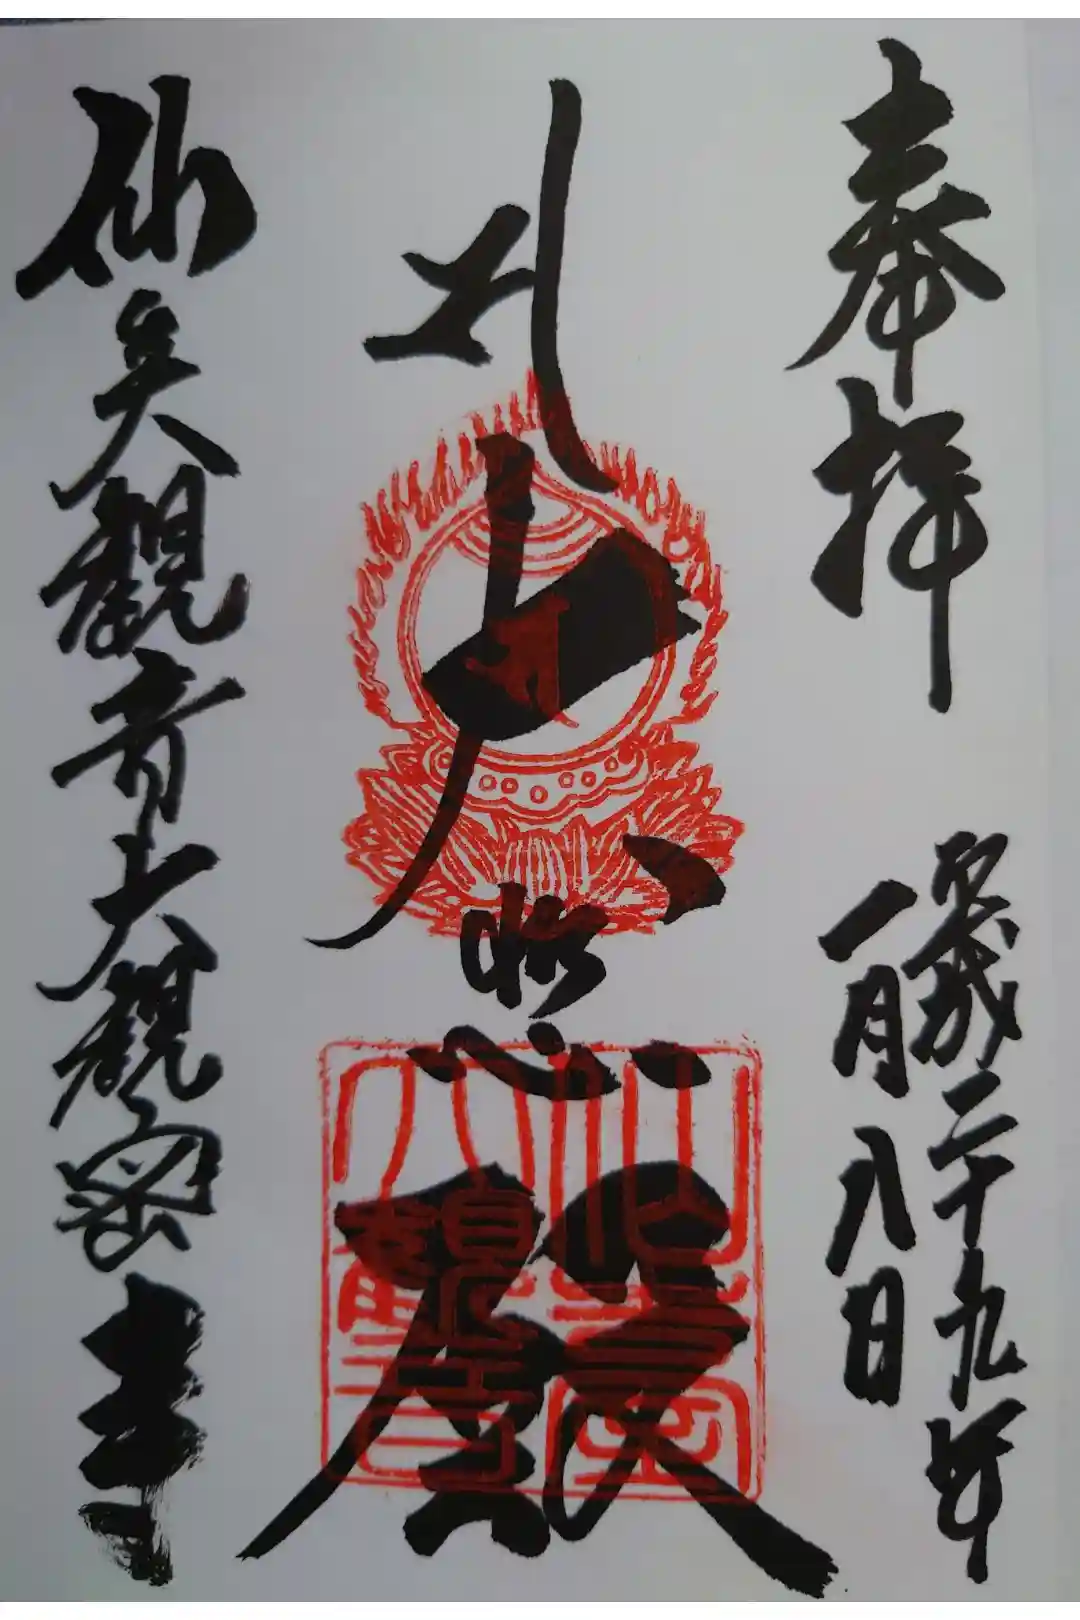 奉拝
平成二十九年
一月八日
大悲殿
仙台観音大観密寺